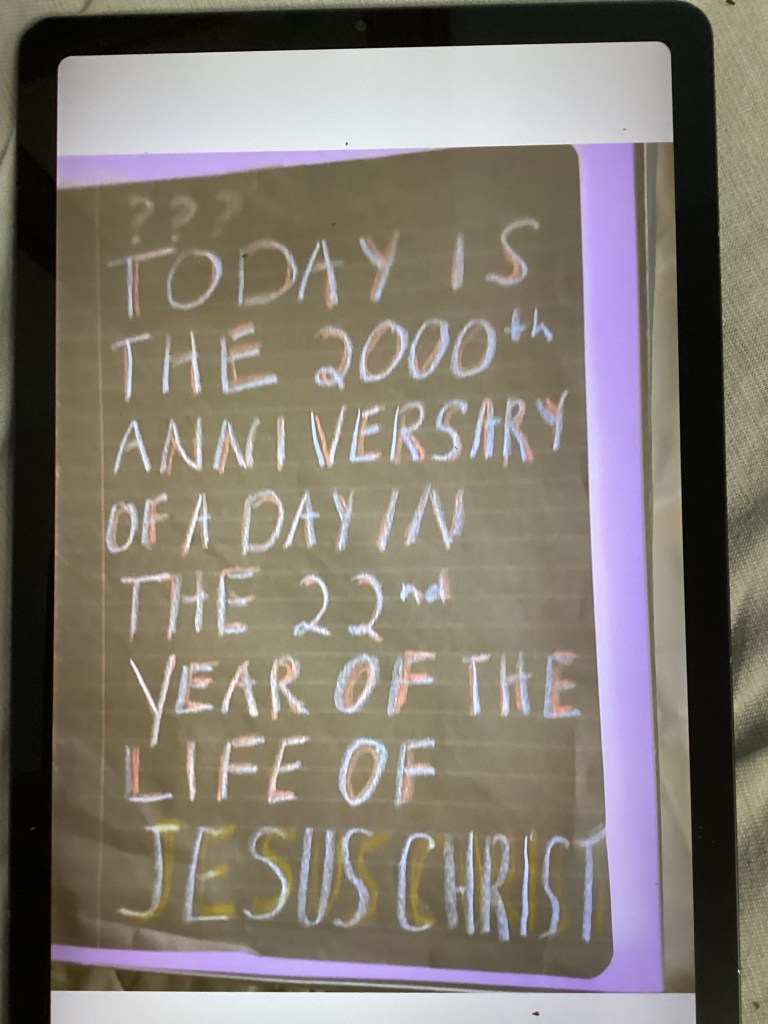 ???
TODAY IS
THE 2000th
ANNIVERSARY
OF A DAY IN
THE 22nd
YEAR OF THE
LIFE OF
JESUS CHRIST